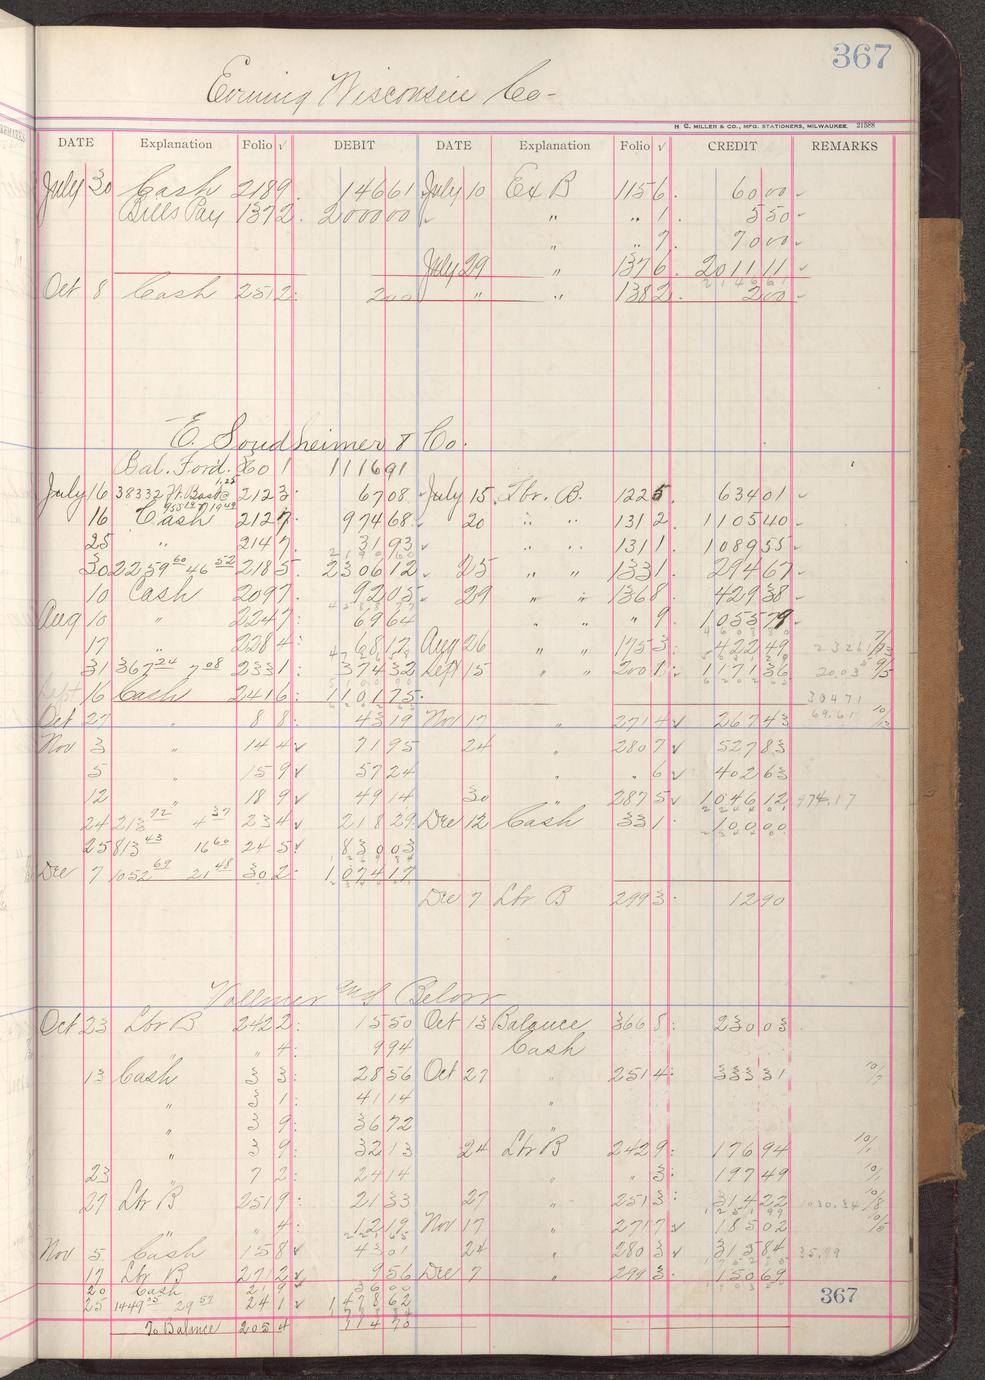 367
Evening Wisconsin Co-
H. C. MILLER & CO., MFG. STATIONERS, MILWAUKEE. 21588
DATE Explanation Folio √ DEBIT DATE Explanation Folio √ CREDIT REMARKS
July 30 Cash 2189. 146 61 July 10 Ex B 1156. 60 00
Bills Pay 1372. 2000 00 " " 1. 5 50
" " 7. 70 00
July 29 " 1376. 2011 11
Oct 8 Cash 2512: 2 00 " " 1382. 2 00
E. Sondheimer & Co.
Bal. Ford. 1116 91
July 16 38332 ft. Bass@ 2123: 67 08 July 15 Lbr. B. 1225. 634 01
16 Cash 2127. 974 68 20 " " 1312. 1105 40
25 " 2147. 31 93 " " 1311. 1089 55
30 2259 60 46 52 2185. 2306 12 25 " " 1331. 294 67
10 Cash 2097. 92 05 29 " " 1368. 429 38
Aug 10 " 2247: 69 64 " 9. 1055 79
17 " 2284: 68 17 Aug 26 " " 1753: 422 49
31 367 24 7 08 2331: 374 32 Sept 15 " " 2001: 1171 36 20.03
Sept 16 Cash 2416: 1101 75 304 71
Oct 27 " 8 8: 43 19 Nov 17 " 2714 √ 267 43 69.61
Nov 3 " 14 4 √ 71 95 24 " 2807 √ 527 83
5 " 15 9 √ 57 24 " " 6 √ 402 63
12 " 18 9 √ 49 14 30 " 2875 √ 1046 12 974.17
24 213 92 4 37 23 4 √ 218 29 Dec 12 Cash 331 100 00
25 813 43 16 60 24 5 √ 830 03
Dec 7 1052 69 21 48 30 2: 1074 17
Dec 7 Lbr B 2993: 12 90
Vollmer and Below
Oct 23 Lbr B 2422: 15 50 Oct 13 Balance 3668: 230 03
" " 4: 9 94 Cash
13 Cash 3 3: 28 56 Oct 27 " 2514: 333 31
" 3 1: 41 14 "
" 3 9: 36 72 "
" 3 9: 32 13 24 Lbr B 2429: 176 94
23 7 2: 24 14 " " 3: 197 49
27 Lbr B 2519: 21 33 27 " 2513: 314 22
" " 4: 12 19 Nov 17 " 2717 √ 185 02
Nov 5 Cash 15 8 √ 43 01 24 " 2803 √ 313 84 35.99
17 Lbr B 2712 √ 9 56 Dec 7 " 2993: 150 69
20 Cash 21 9 √ 36 00
25 1449 05 29 57 24 1 √ 1478 62
To Balance 205 4 714 70
367